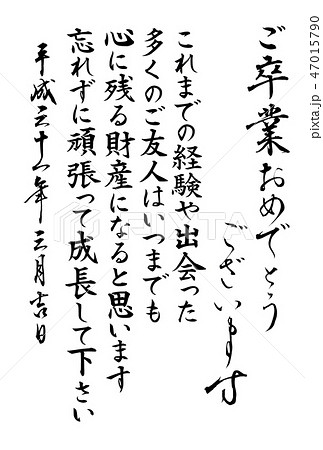 ご卒業おめでとう
ございます
これまでの経験や出会った
多くのご友人はいつまでも
心に残る財産になると思います
忘れずに頑張って成長して下さい
平成三十一年三月吉日
PIXTA
pixta.jp - 47015790